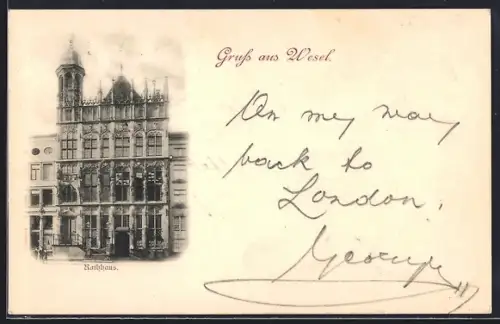 Gruß aus Wesel.
On my way
back to
London.
George
Rathhaus.